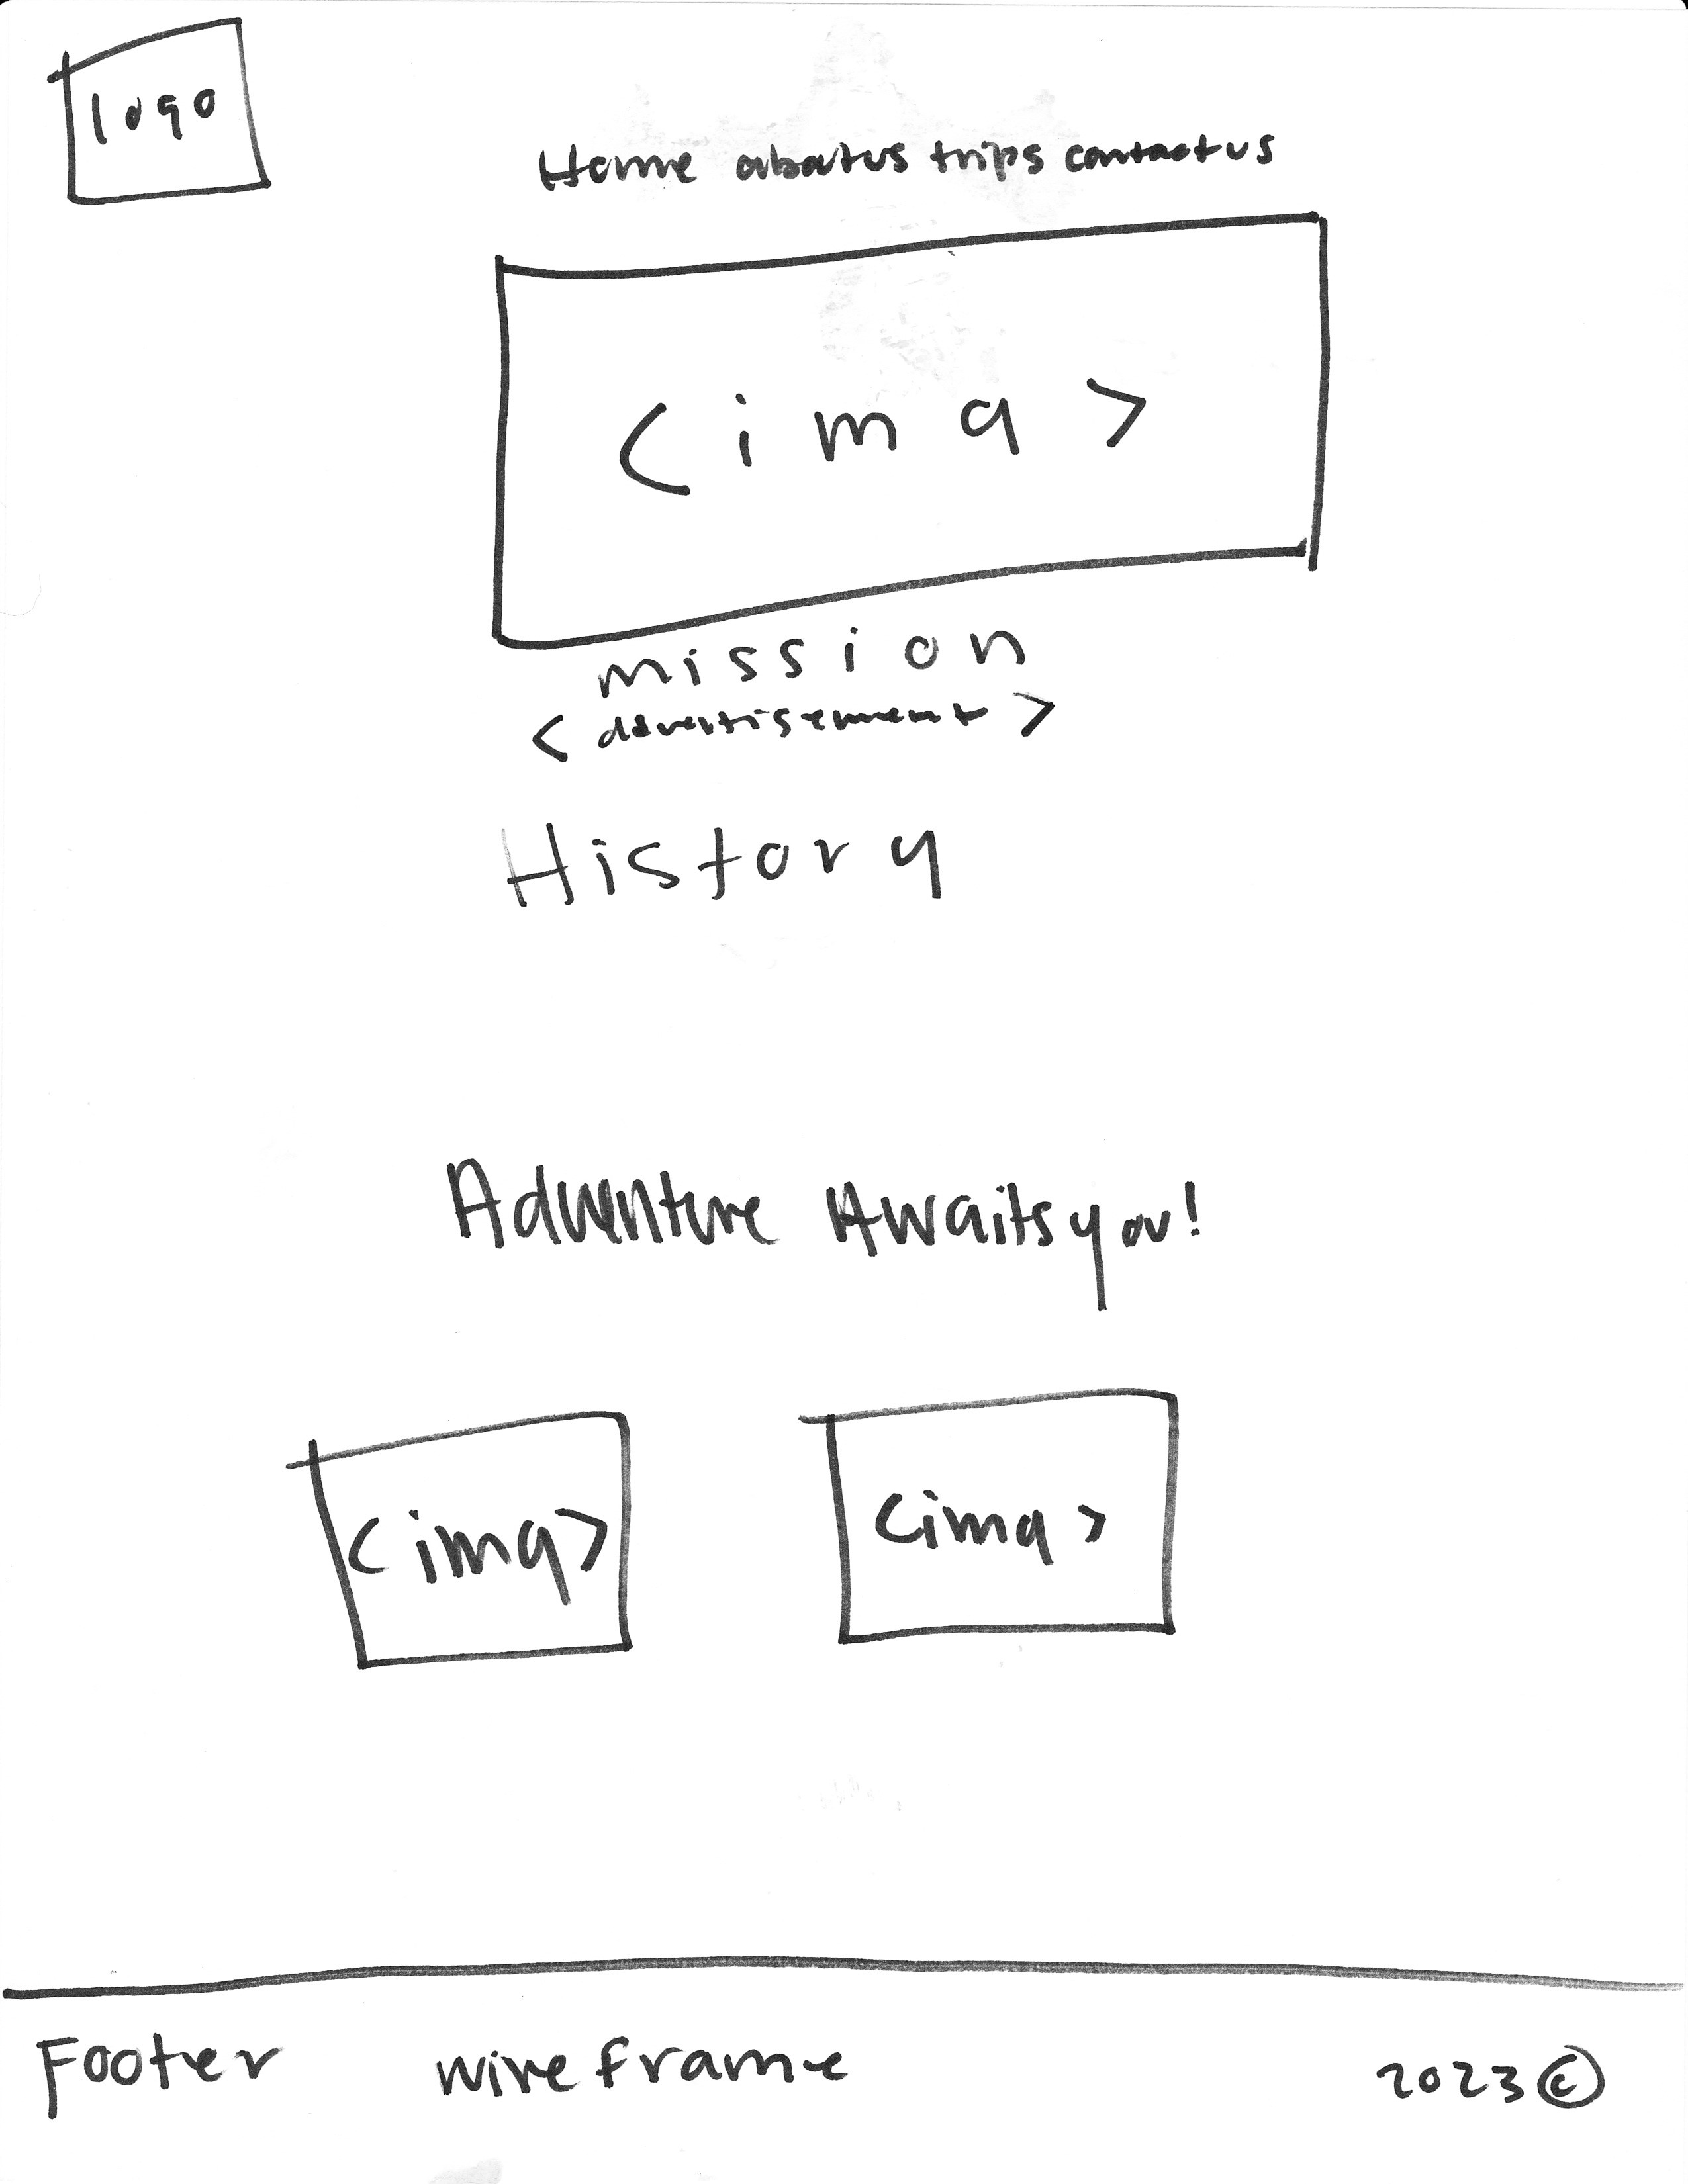 logo
Home about us trips contact us
<img>
mission
<advertisement>
History
Adventure Awaits you!
<img> <img>
Footer wireframe 2023 ©